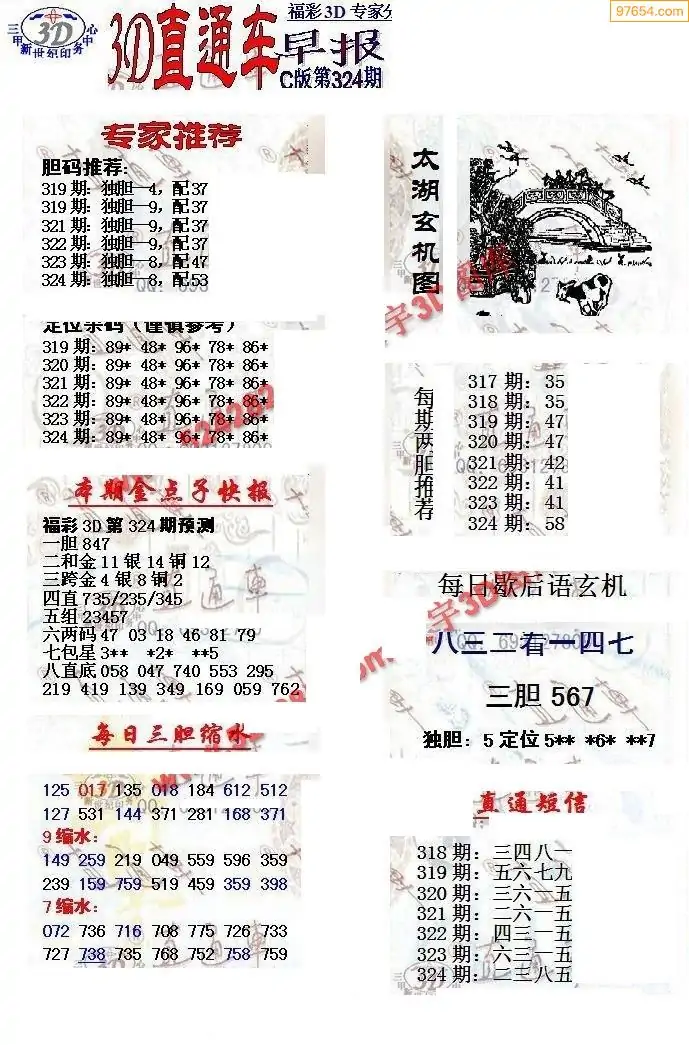 97654.com
福彩3D 专家分
三甲新世纪印务中心
3D
3D直通车 早报
C版第324期
专家推荐
胆码推荐:
319 期: 独胆—4, 配37
319 期: 独胆—9, 配37
321 期: 独胆—9, 配37
322 期: 独胆—9, 配37
323 期: 独胆—8, 配47
324 期: 独胆—8, 配53
定位杀码（谨慎参考）
319 期: 89* 48* 96* 78* 86*
320 期: 89* 48* 96* 78* 86*
321 期: 89* 48* 96* 78* 86*
322 期: 89* 48* 96* 78* 86*
323 期: 89* 48* 96* 78* 86*
324 期: 89* 48* 96* 78* 86*
本期金点子快报
福彩3D第324期预测
一胆 847
二和金 11 银 14 铜 12
三跨金 4 银 8 铜 2
四直 735/235/345
五组 23457
六两码 47 03 18 46 81 79
七包星 3** *2* **5
八直底 058 047 740 553 295
219 419 139 349 169 059 762
每日三胆缩水
125 017 135 018 184 612 512
127 531 144 371 281 168 371
9缩水:
149 259 219 049 559 596 359
239 159 759 519 459 359 398
7缩水:
072 736 716 708 775 726 733
727 738 735 768 752 758 759
太湖玄机图
每期两胆推荐
317 期: 35
318 期: 35
319 期: 47
320 期: 47
321 期: 42
322 期: 41
323 期: 41
324 期: 58
每日歇后语玄机
八三二看一四七
三胆 567
独胆: 5 定位 5** *6* **7
直通短信
318 期: 三四八一
319 期: 五六七九
320 期: 三六一五
321 期: 二六一五
322 期: 四三一五
323 期: 六三一五
324 期: 二三八五